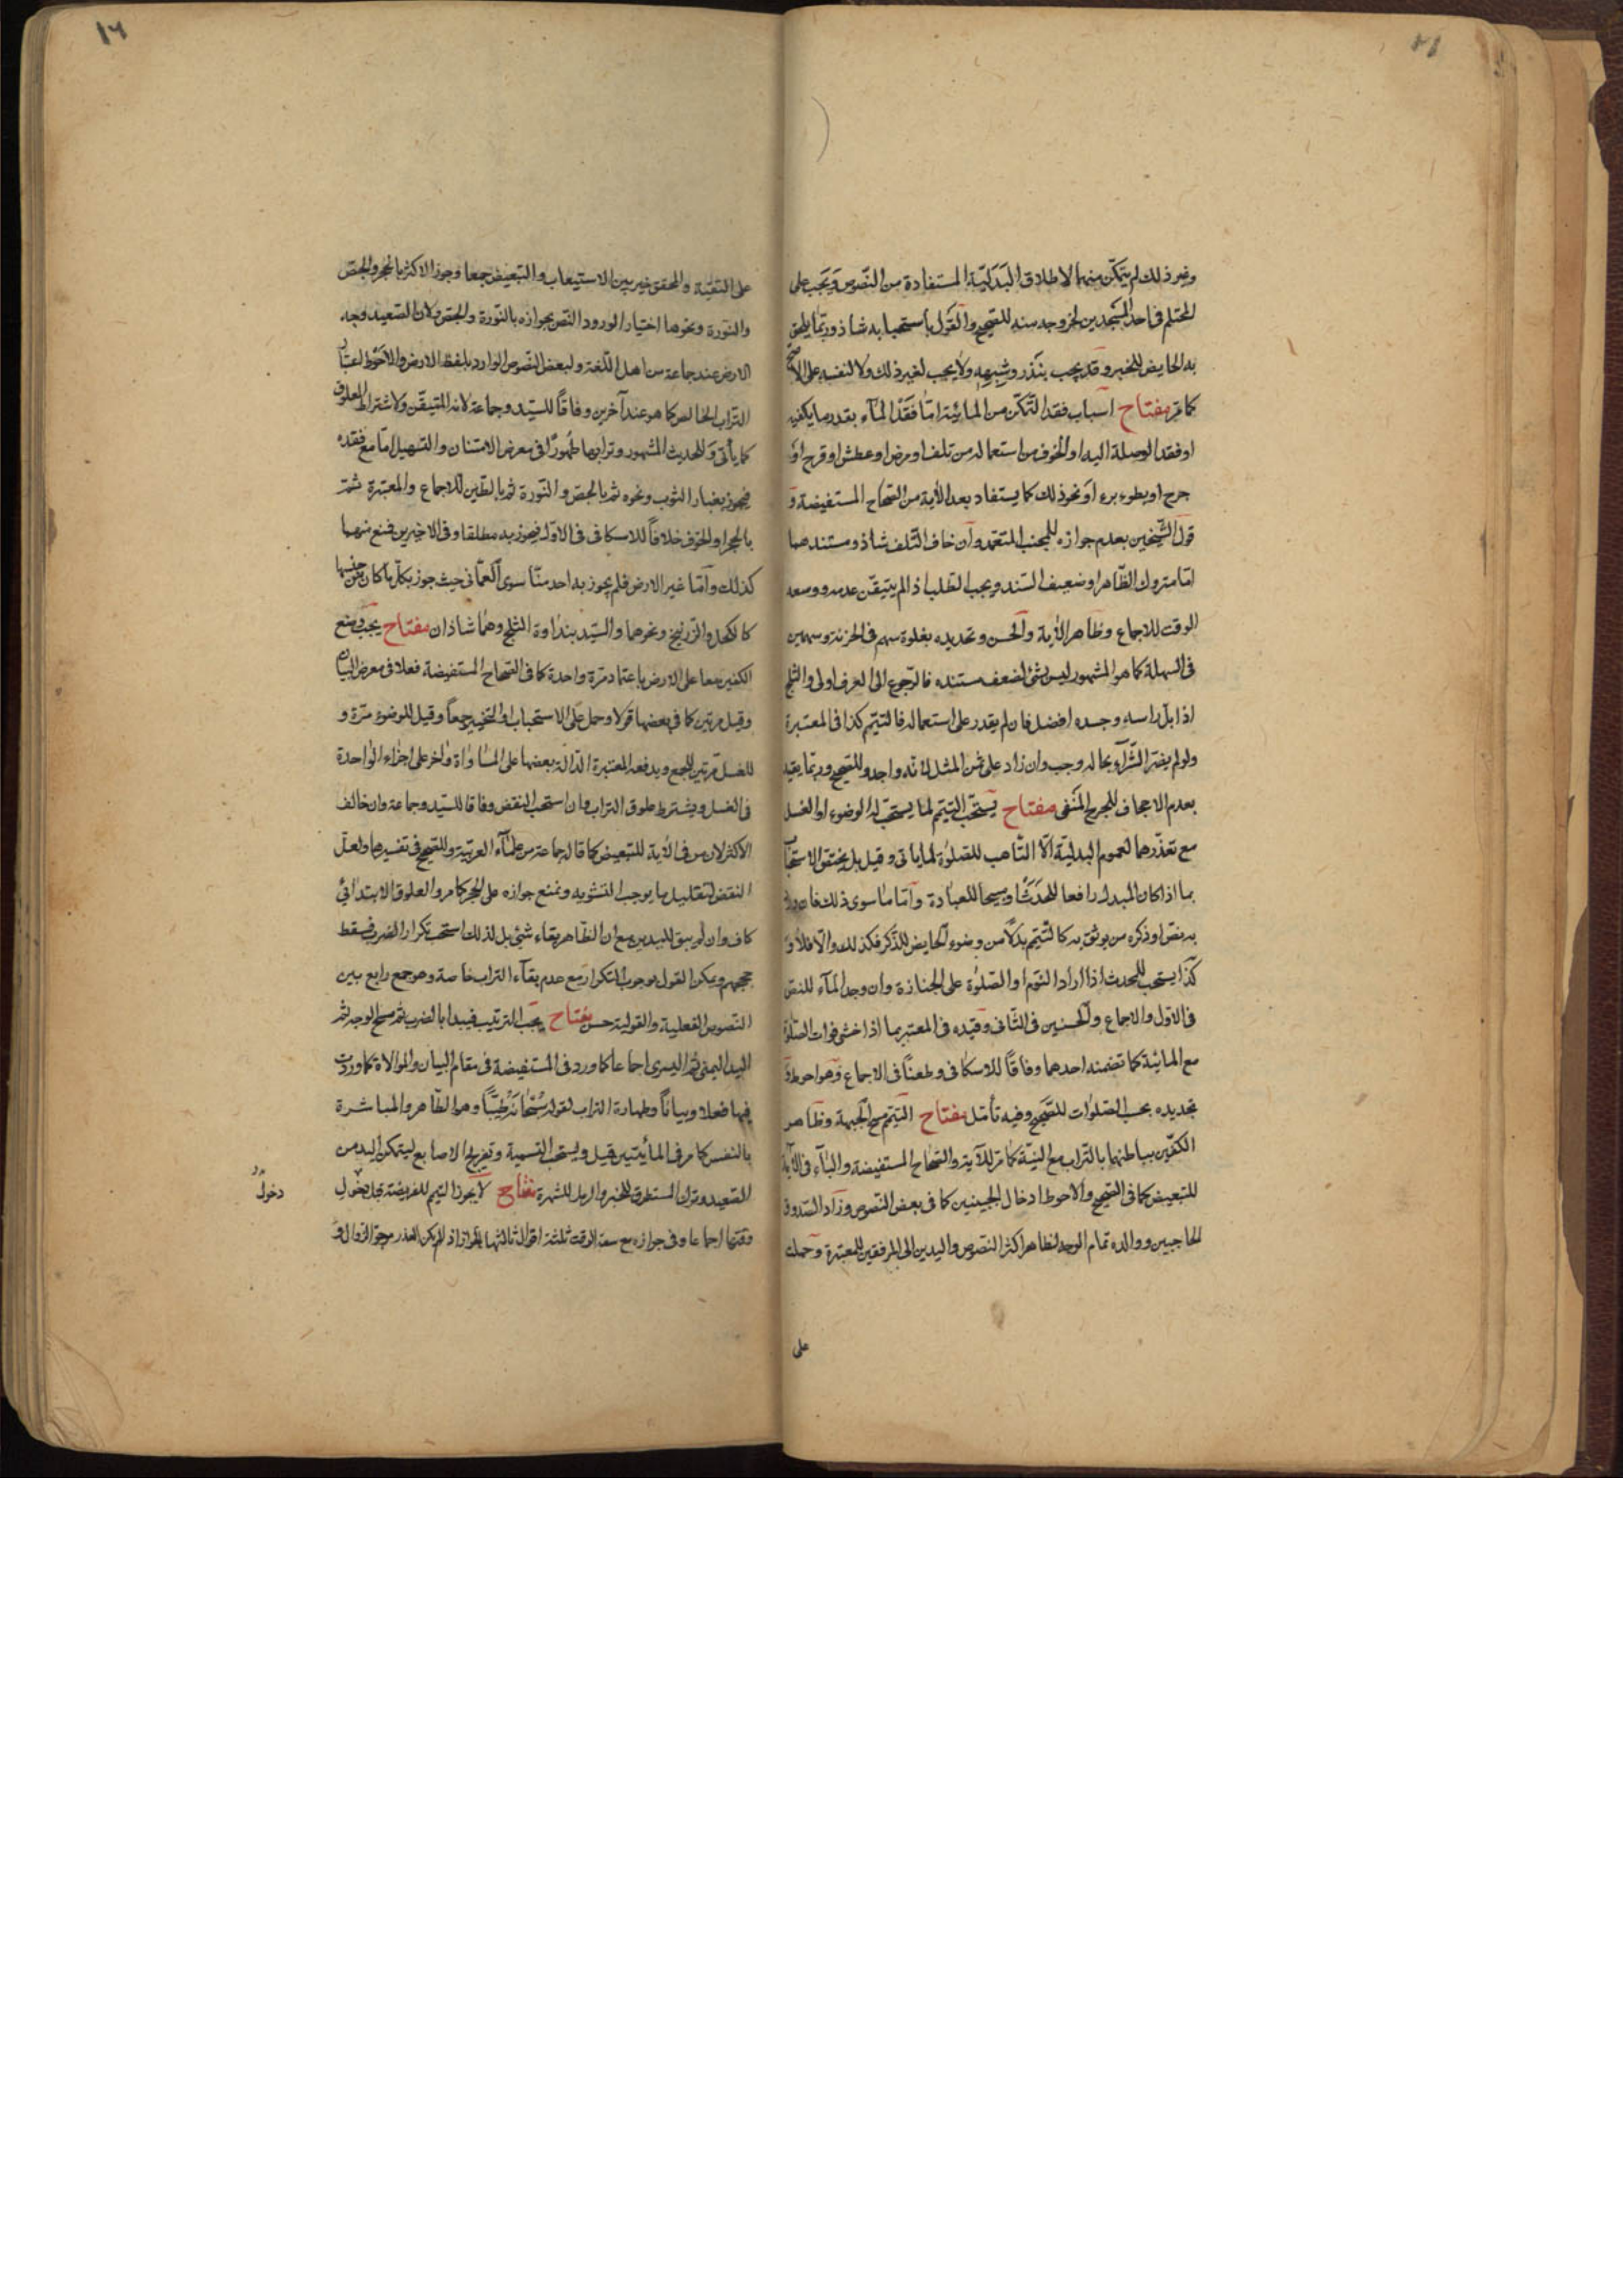 وغير ذلك لم يتمكّن منهما لاطلاق البَدَليّة المستفادة من النّصوص وَيَجب على
المحتلم فى احد المسجدين لخروجه منه للصّحيح والقَول باستحبابه شاذ وربّما يلحق
به الحايض للخبر وقد يجب بنَذر وشِبهِه ولا يجب لغير ذلك ولا لنفسه على الاصحّ
كما مَرّ مفتاح اسباب فقد التّمكّن من المائيّة امّا فَقْدُ المآء بقدر ما يكفيه
او فقد الوصلة اليه او الخوف من استعماله من تلف او مرض او عطش او قرح او
جرح او بطوء برء اَو نحو ذلك كما يستفاد بعد الآية من الصّحاح المستفيضة وَ
قول الشّيخين بعدم جوازه للمجنب المتعمّد وان خاف التّلف شاذ ومستندهما
امّا متروك الظّاهر او ضعيف السّند ويجب الطلب اذا لم يتيقّن عدمه ووسعه
الوقت للاجماع وظاهر الآية وَالحَسن وتحديده بغلوة سهم فى الحزنة وسهمين
فى السهلة كما هو المشهور ليس بشئ لضعف مستنده فالرّجوع الى العرف اولى والثلج
اذا بلّ راسه وجسده افضل فان لم يقدر على استعماله فالتيمّم كذا فى المعتبرة
ولو لم يضرّ الشّرآء بحاله وجب وان زاد على ثمن المثل لانّه واجد وللصّحيح وربّما يقيّد
بعدم الاجحاف للحرج المَنفى مفتاح يستحَبّ التيمّم لما يستحبّ له الوضوء او الغسل
مع تعذّرهما لعموم البدليّة الّا التّأهب للصّلوة لما ياتى وقيل بل يختصّ الاستحباب
بما اذا كان المبدل رافعا للحَدَث او مبيحا للعبادة وَامّا ما سوى ذلك فان ورد
به نصّ او ذكره من يوثق به كالتّيمّم بَدَلاً من وضوء الحايض للذّكر فكذلك والّا فلا وَ
كَذا يستحب للمحدث اذا اراد النّوم او الصّلوة على الجنازة وان وجد المآء للنصّ
فى الاوّل والاجماع وَالحسنين فى الثّانى وقيّده فى المعتبر بما اذا خشى فوات الصّلوة
مع المائيّة كما تضمنه احدهما وفاقاً للاسكافى وطعناً فى الاجماع وَهو احوط وَ
تجديده بحسب الصّلوات للصّحيح وفيه تأمّل مفتاح التيمّم مسح الجبهة وظاهر
الكفّين بباطنهما بالتراب مع النيّة كما مَرّ للآية والصّحاح المستفيضة والبآء فى الآية
للتبعيض كما فى الصّحيح والاحوط ادخال الجبينين كما فى بعض النّصوص وزاد الصّدوق
الحاجبين ووالده تمام الوجه لظاهر اكثر النّصوص واليدين الى المرفقين للمعتبرة وحملت
على
على التقيّة والمحقق خيّر بين الاستيعاب والتبعيض جمعا وجوز الاكثر بالحجر والجصّ
والنّورة ونحوها اختيارا لورود النّص بجوازه بالنّورة والجصّ ولان الصّعيد وجه
الارض عند جماعة من اهل اللّغة ولبعض النّصوص الوارد بلفظ الارض والاحوط اعتبار
التّراب الخالص كما هو عند آخرين وفاقاً للسّيّد وجماعة لانه المتيقّن ولاشتراط العلوق
كما يأتى وَللحديث المشهور وترابها طَهُورًا فى معرض الامتنان والتسهيل امّا مع فقده
فيجوز بغبار الثوب ونحوه ثم بالجصّ والنّورة ثم بالطّين للاجماع والمعتبرة ثمّ
بالحجر او الخزف خلافاً للاسكافى فى الاوّل فيجوز به مطلقا وفى الاخيرين فمنع منهما
كذلك وَاَمّا غير الارض فلم يجوز به احد منّا سوى العمّانى حيث جوز بكلّ ما كان من جنسها
كالكحل والزّرنيخ ونحوهما والسّيّد بنداوة الثلج وهما شاذان مفتاح يجب وضع
الكفّين معا على الارض باعتماد مرّة واحدة كما فى الصّحاح المستفيضة فعلا فى معرض البيان
وقيل مرتين كما فى بعضها قولا وحمل على الاستحباب او التّخيير جمعاً وقيل للوضوء مرّة و
للغسل مرتين للجمع ويدفعه المعتبرة الدّالّة بعضها على المساواة واخر على اجزاء الواحدة
فى الغسل ويشترط علوق التراب وان استحب النفض وفاقا للسّيّد وجماعة وان خالف
الاكثر لان من فى الآية للتبعيض كما قاله جماعة من علمآء العربيّة وللصّحيح فى تفسيرها ولعلّ
النفض لتقليل ما يوجب التشويه ونمنع جوازه على الحجر كما مر والعلوق الابتدائى
كاف وان لم يبق لليدين مع ان الظّاهر بقاء شئ بل لذلك استحب تكرار الضرب فسقط
حججهم ويمكن القول بوجوب التكرار مع عدم بقآء التراب خاصة وهو جمع رابع بين
النّصوص الفعلية والقولية حسن مفتاح يجب الترتيب فيبدا بالضرب ثم مسح الوجه ثمّ
اليد اليمنى ثم اليسرى اجماعاً كما ورد فى المستفيضة فى مقام البيان والموالاة كما وردت
فيها فعلا وبياناً وطهارة التراب لقوله سُبْحَانَه طَيّبًا وهو الطّاهر والمباشرة
بالنفس كما مر فى المائيتين قيل ويستحب التسمية وتفريج الاصابع ليتمكن اليد من
الصّعيد وترك المستطرق للخبر والرمل للشهرة مفتاح لا يجوز التيمم للفريضة قبل دخول
دخول
وقتها اجماعا وفى جوازه مع سعة الوقت ثلثة اقوال ثالثها الجواز اذا لم يكن العذر مرجوّ الزوال وَ